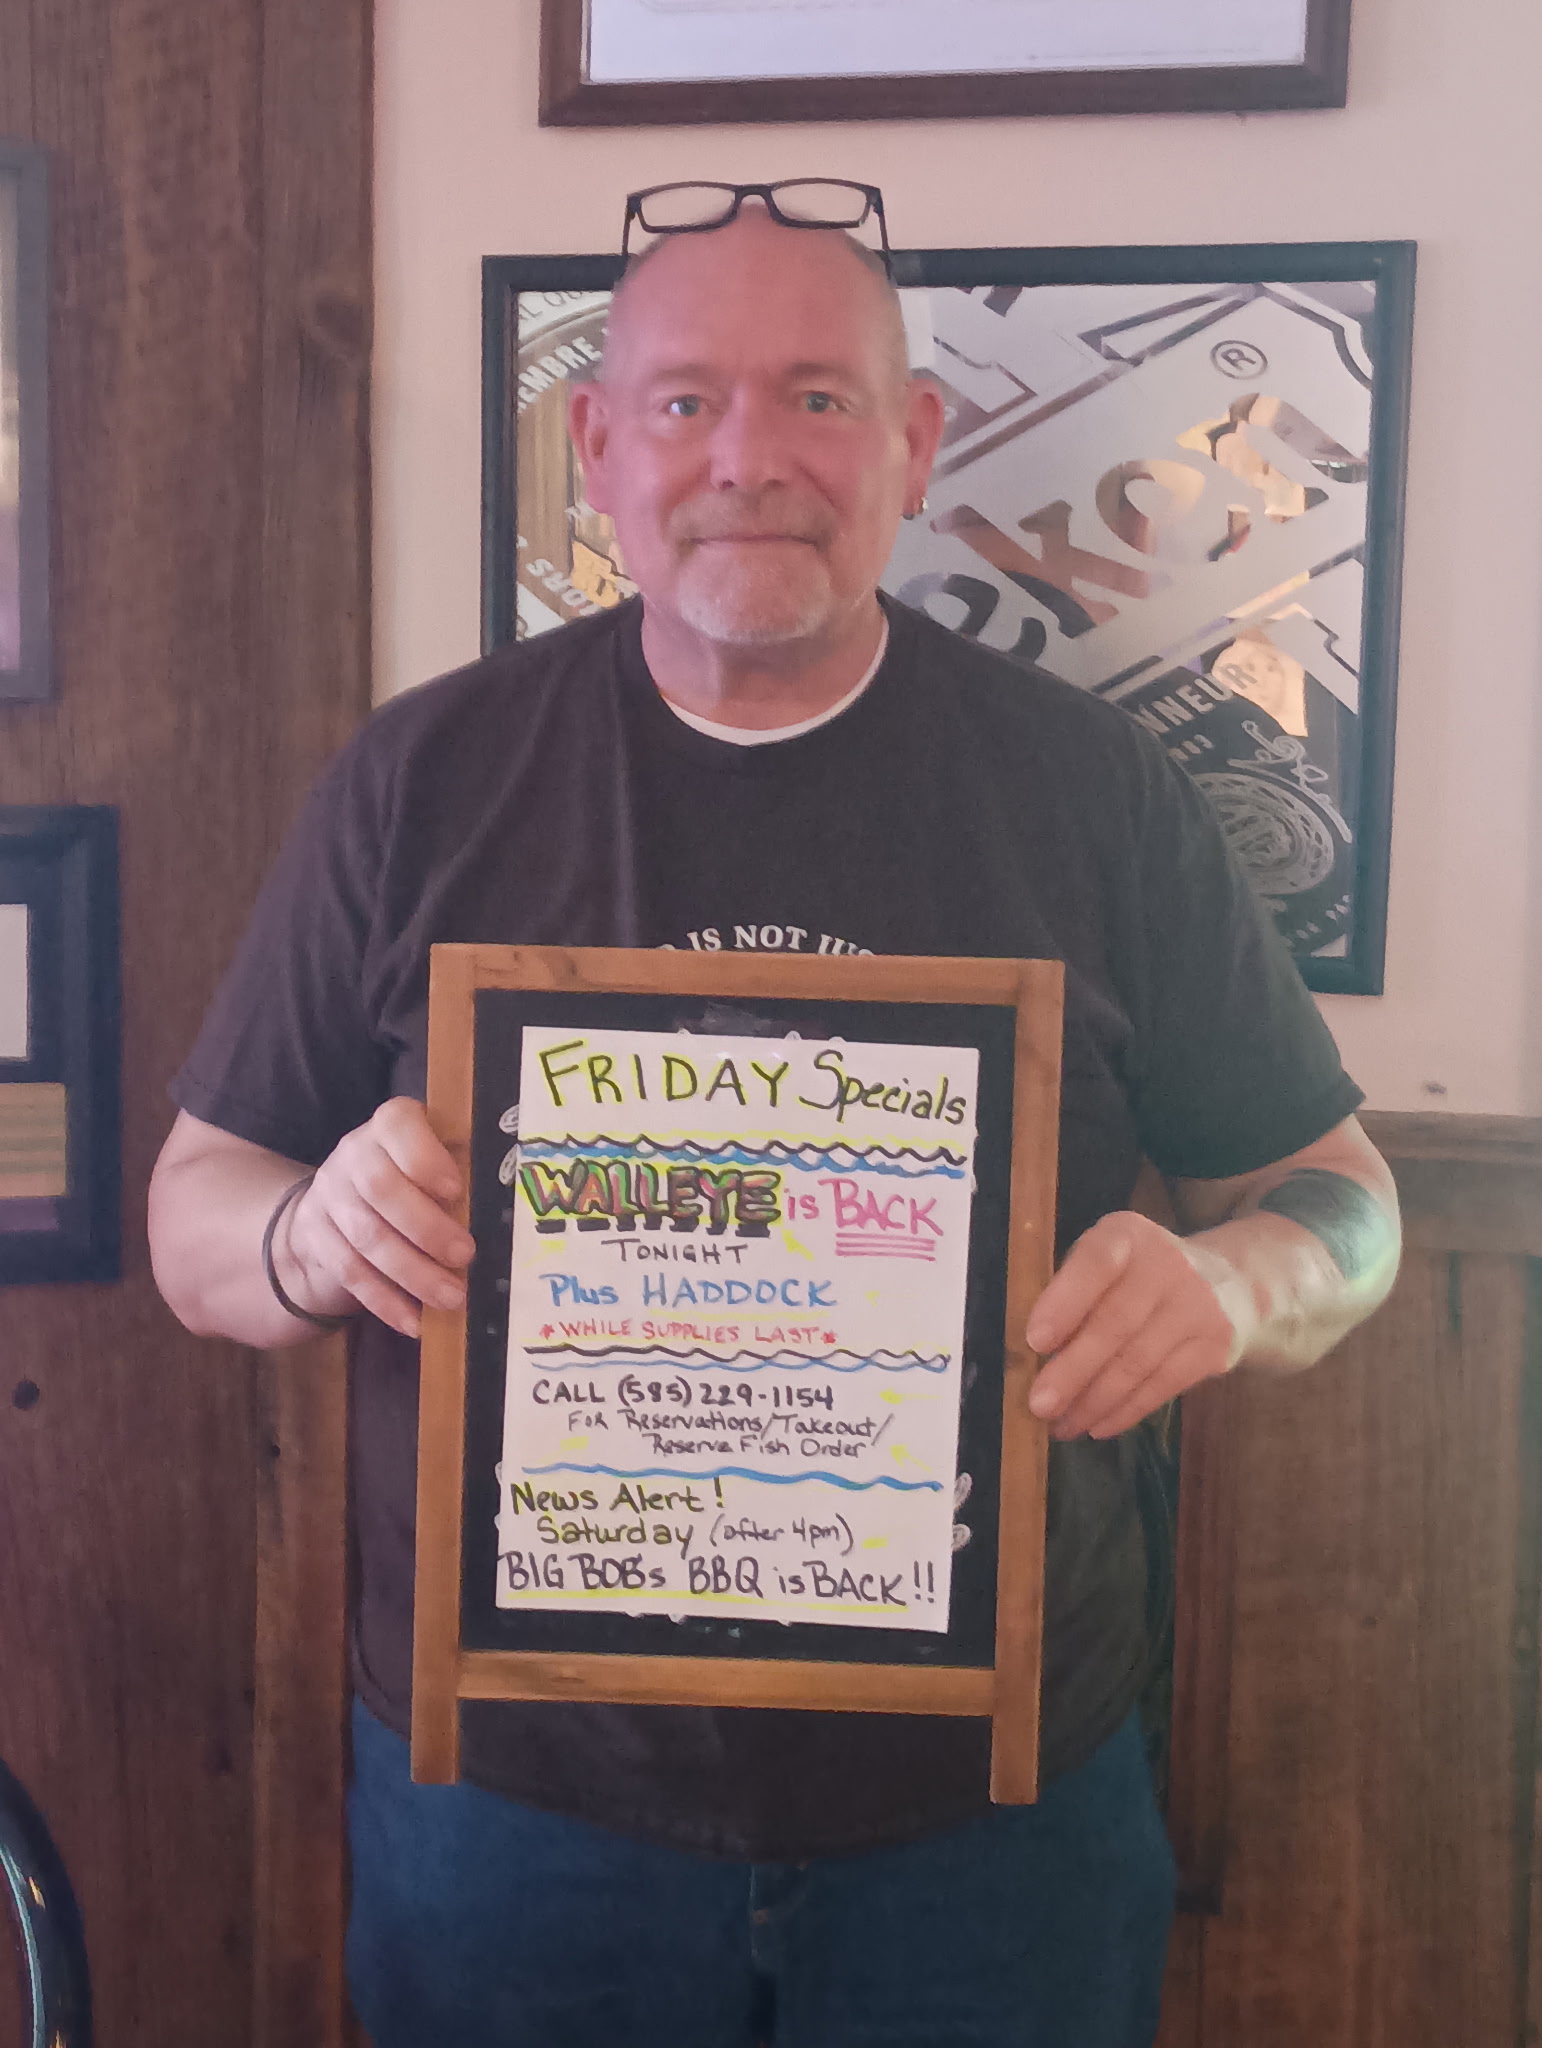 ®
IS NOT
FRIDAY Specials
WALLEYE is BACK
TONIGHT
Plus HADDOCK
*WHILE SUPPLIES LAST*
CALL (585) 229-1154
FOR Reservations/Takeout/
Reserve Fish Order
News Alert!
Saturday (after 4pm)
BIG BOB's BBQ is BACK!!